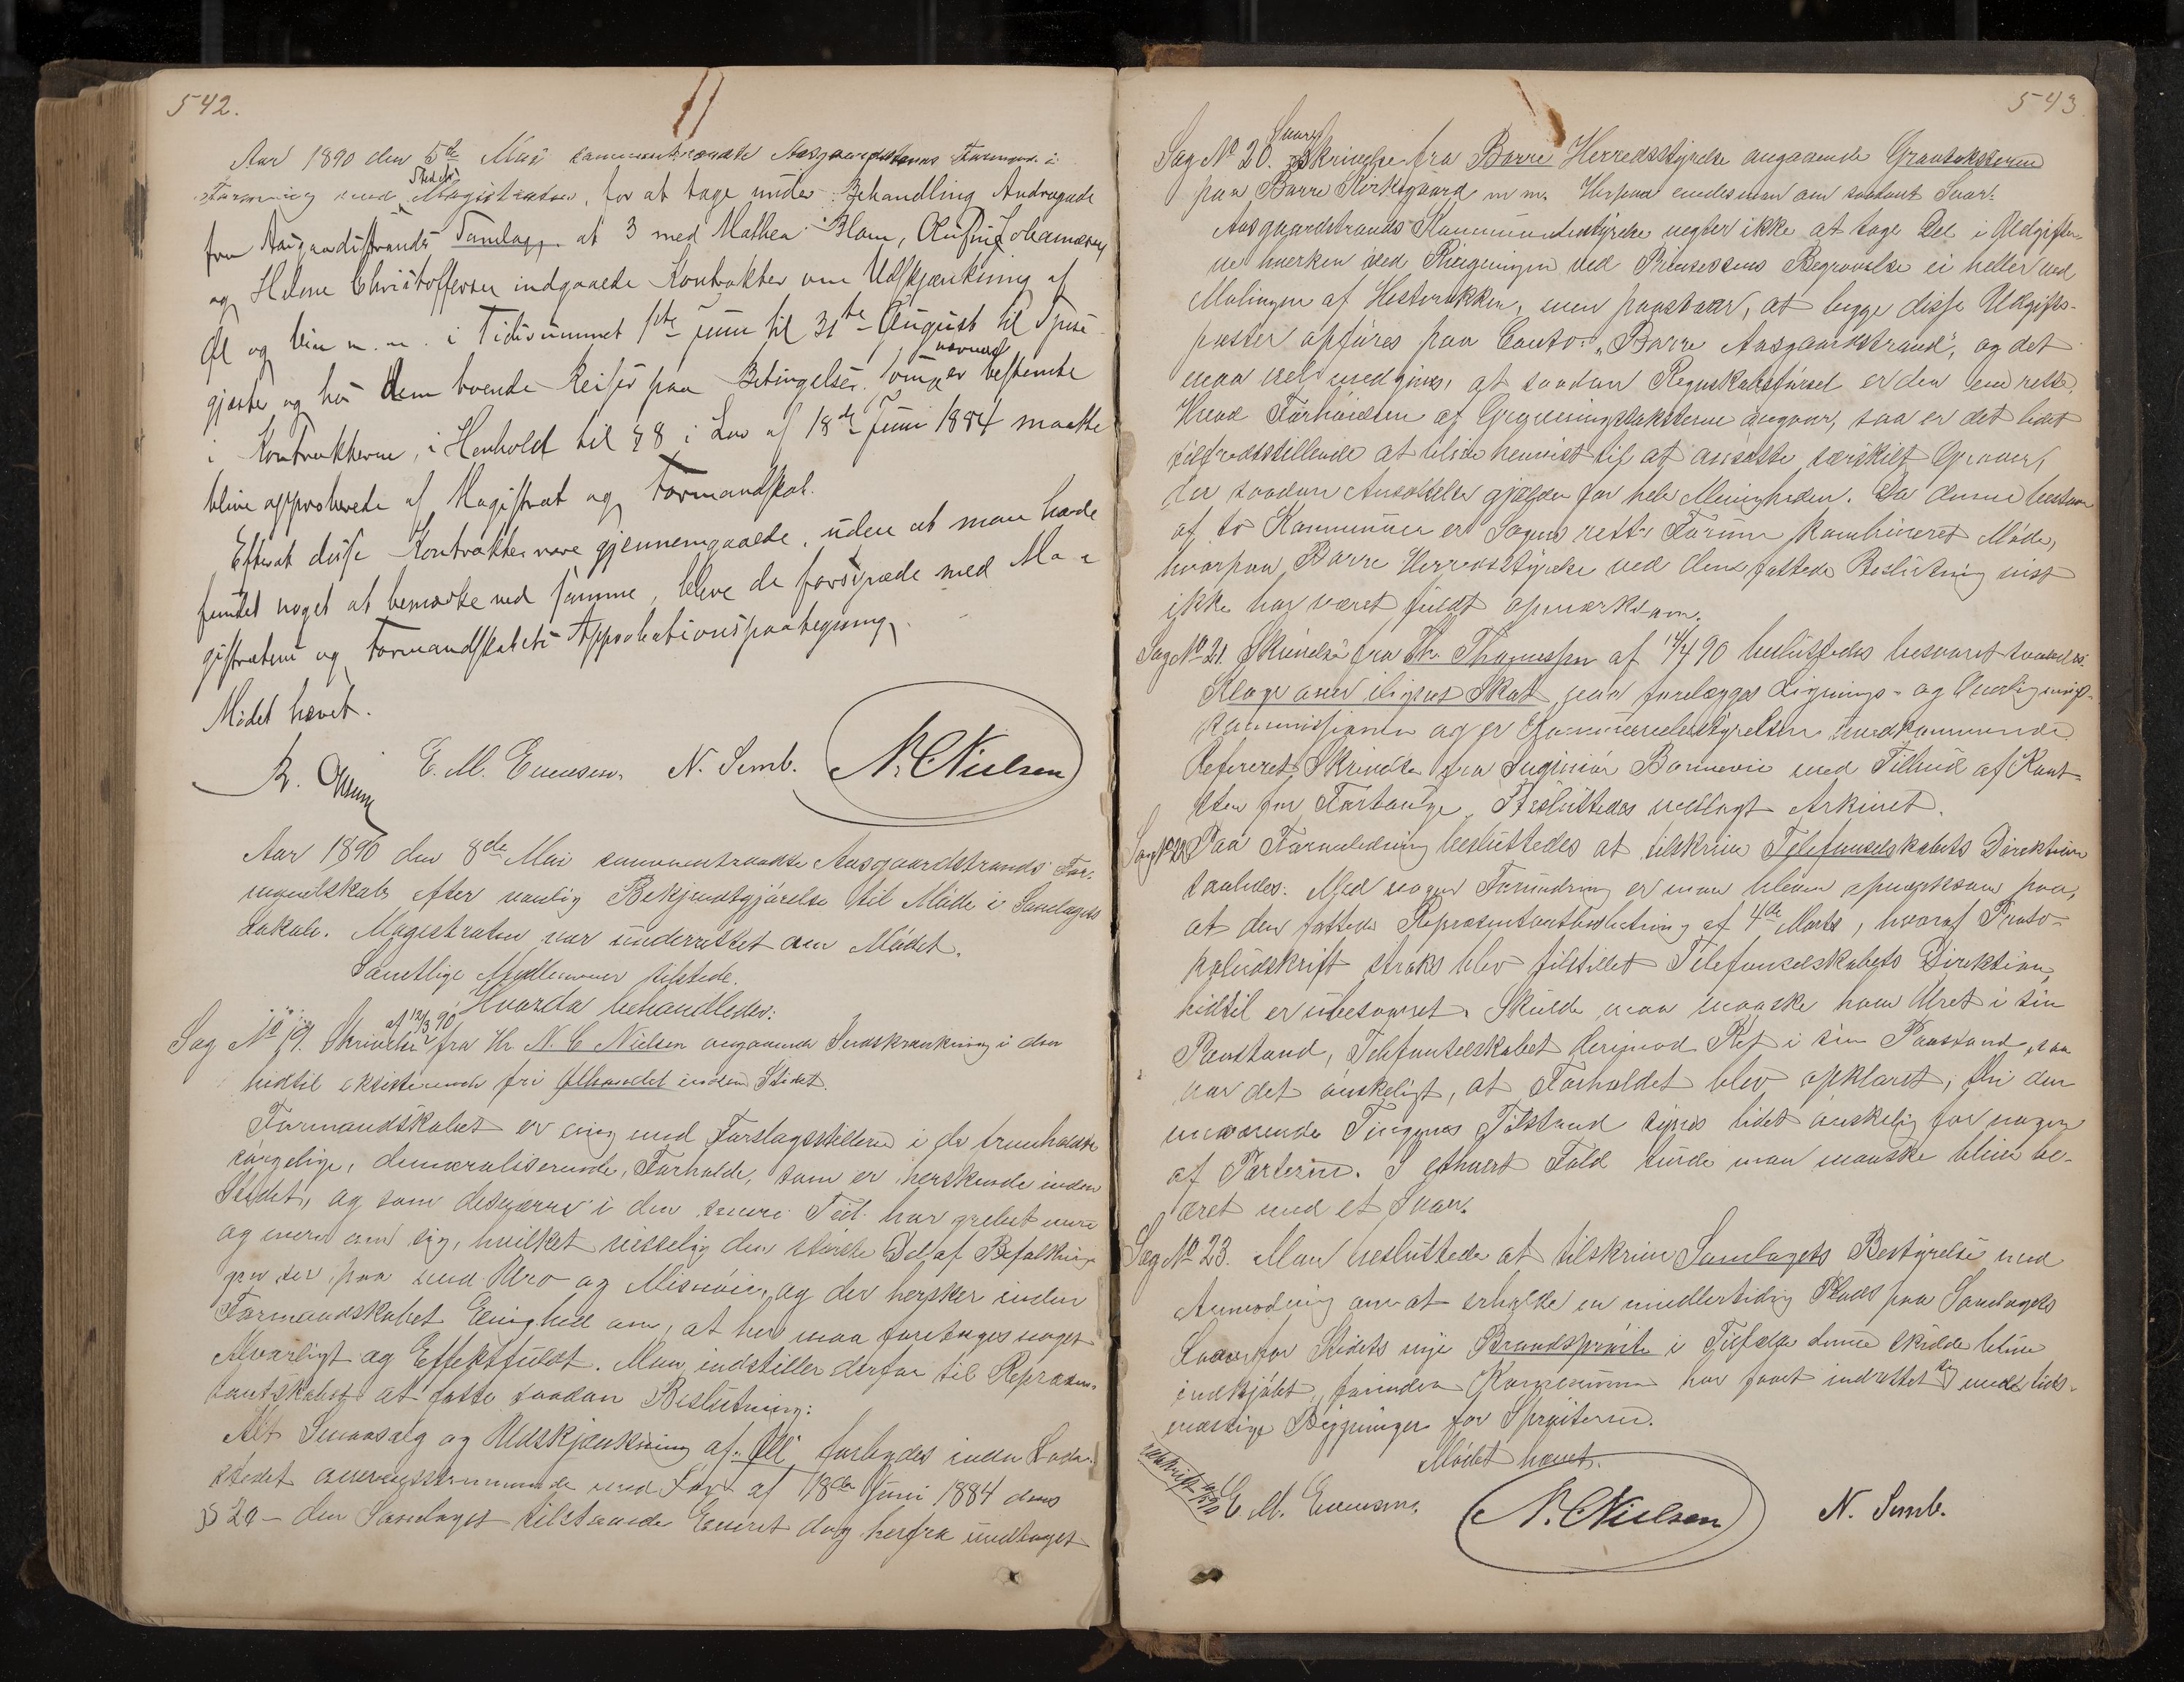 542.
Aar 1890 den 5te Mai sammentraadte Aasgaardstrands Formænd i
Forening med Stedets Magistraten, for at tage under Behandling Andragende
fra Aasgaardstrands Samlag, at 3 med Mathea Ham, Johannesen
og Helene Christoffersen indgaaede Kontrakter om Udskjænkning af
Øl og Vin m. m. i Tidsrummet 1ste Juni til 31te August til Spise-
gjæster og hos dem boende Reisende paa Betingelser, som er nævnt bestemte
i Kontrakterne, i Henhold til § 8 i Lov af 18de Juni 1884 maatte
blive approberede af Magistrat og Formandskab.
Efterat disse Kontrakter vare gjennemgaaede, uden at man havde
fundet noget at bemærke ved samme, bleve de forsynede med Ma-
gistratens og Formandskabets Approbationspaategning.
Mødet hævet.
E. M. Evensen. N. Semb. N. C. Nielsen
Aar 1890 den 8de Mai sammentraadte Aasgaardstrands For-
mandskab efter vanlig Bekjendtgjørelse til Møde i Samlagets
Lokale. Magistraten var underrettet om Mødet.
Samtlige Medlemmer tilstede.
Hvorda behandledes:
Sag No 19. Skrivelse af 12/3 90 fra Hr N. C. Nielsen angaaende Indskrænkning i den
hidtil eksisterende fri Ølhandel inden Stedet.
Formandskabet er enig med Forslagsstilleren i de fremholdte
sørgelige, demoraliserende, Forholde, som er herskende inden
Stedet, og som desværre i den senere Tid har grebet mere
og mere om sig, hvilket visselig den største Del af Befolknin-
gen ser paa med Uro og Misnøie, og der hersker inden
Formandskabet Enighed om, at her maa foretages noget
Alvorligt og Effektfuldt. Man indstiller derfor til Repræsen-
tantskabet at fatte saadan Beslutning:
Alt Smaasalg og Udskjænkning af "Øl" forbydes inden Lade-
stedet overensstemmende med Lov af 18de Juni 1884 dens
§ 20 – den Samlaget tilstaaede Eneret dog herfra undtaget
543
Sag No 20. Svar Skrivelse fra Borre Herredsstyrelse angaaende Gravtaksterne
paa Borre Kirkegaard m m. Herpaa enedes man om saadant Svar:
Aasgaardstrands Kommunestyrelse negter ikke at tage Del i Udgifter-
ne hverken ved Ringningen ved Prinsessens Begravelse ei heller ved
Malingen af Hestrækken, men paastaar, at begge disse Udgifts-
poster opføres paa Conto "Borre Aasgaardstrand", og det
maa vel medgives, at saadan Regnskabsførsel er den ene rette.
Hvad Forhøielsen af Gravningstaksterne angaar, saa er det lidet
tilfredsstillende at blive henvist til at ansætte særskilt Graver,
der saadan Ansættelse gjælder for hele Menigheden. Da denne bestaar
af to Kommuner er Sagens rette Forum kombineret Møde,
hvorpaa Borre Herredsstyrelse ved den fattede Beslutning vist
ikke har været fuldt opmærksom.
Sag No 21. Skrivelse fra Th. Thomessen af 14/4 90 besluttedes besvaret saaledes:
Klage over ilignet Skat maa forelægges Lignings- og Overlignings-
kommissionen og er Kommunestyrelsen uvedkommende
Refereret Skrivelse fra Ingeniør Bonnevie med Tilbud af Kant-
sten for Fortauge. Besluttedes vedlagt Arkivet.
Sag No 22 Paa Foranledning besluttedes at tilskrive Telefonselskabets Direktion
saaledes: Med nogen Forundring er man bleven opmærksom paa,
at den fattede Repræsentantbeslutning af 4de Marts, hvoraf Proto-
koludskrift straks blev tilstillet Telefonselskabets Direktion,
hidtil er ubesvaret. Skulde man maaske have Uret i sin
Paastand, Telefonselskabet derimod Ret i sin Paastand, saa
var det ønskeligt, at Forholdet blev opklaret, thi den
nuværende Tingenes Tilstand synes lidet ønskelig for nogen
af Parterne. I ethvert Fald turde man maaske blive be-
æret med et Svar.
Sag No 23. Man besluttede at tilskrive Samlagets Bestyrelse med
Anmodning om at erholde en midlertidig Plads paa Samlagets
for Stedets nye Brandsprøite i Tilfælde denne skulde blive
indkjøbt, forinden Kommunen har faaet indrettet sig med tids-
mæssige Bygninger for Sprøiterne.
Mødet hævet.
E M. Evensen. N. C. Nielsen N. Semb.